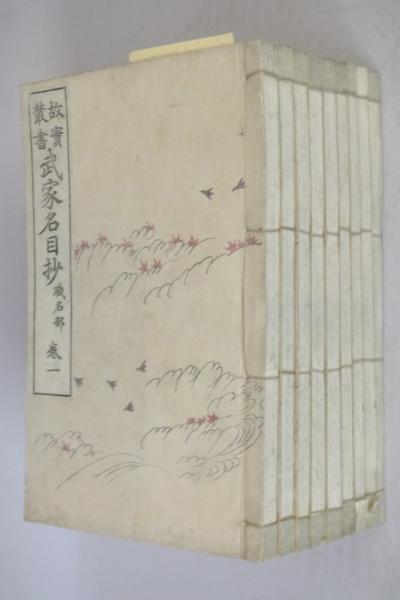 故實
叢書
武家名目抄 職名部 卷一